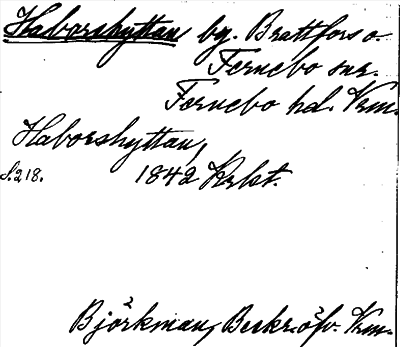 Haborshyttan by. Brattfors o.
Fernebo snr.
Fernebo hd. Vrm.
Haborshyttan,
S. 218. 1842 Krbst.
Björkman, Beskr. öfv. Vrm.